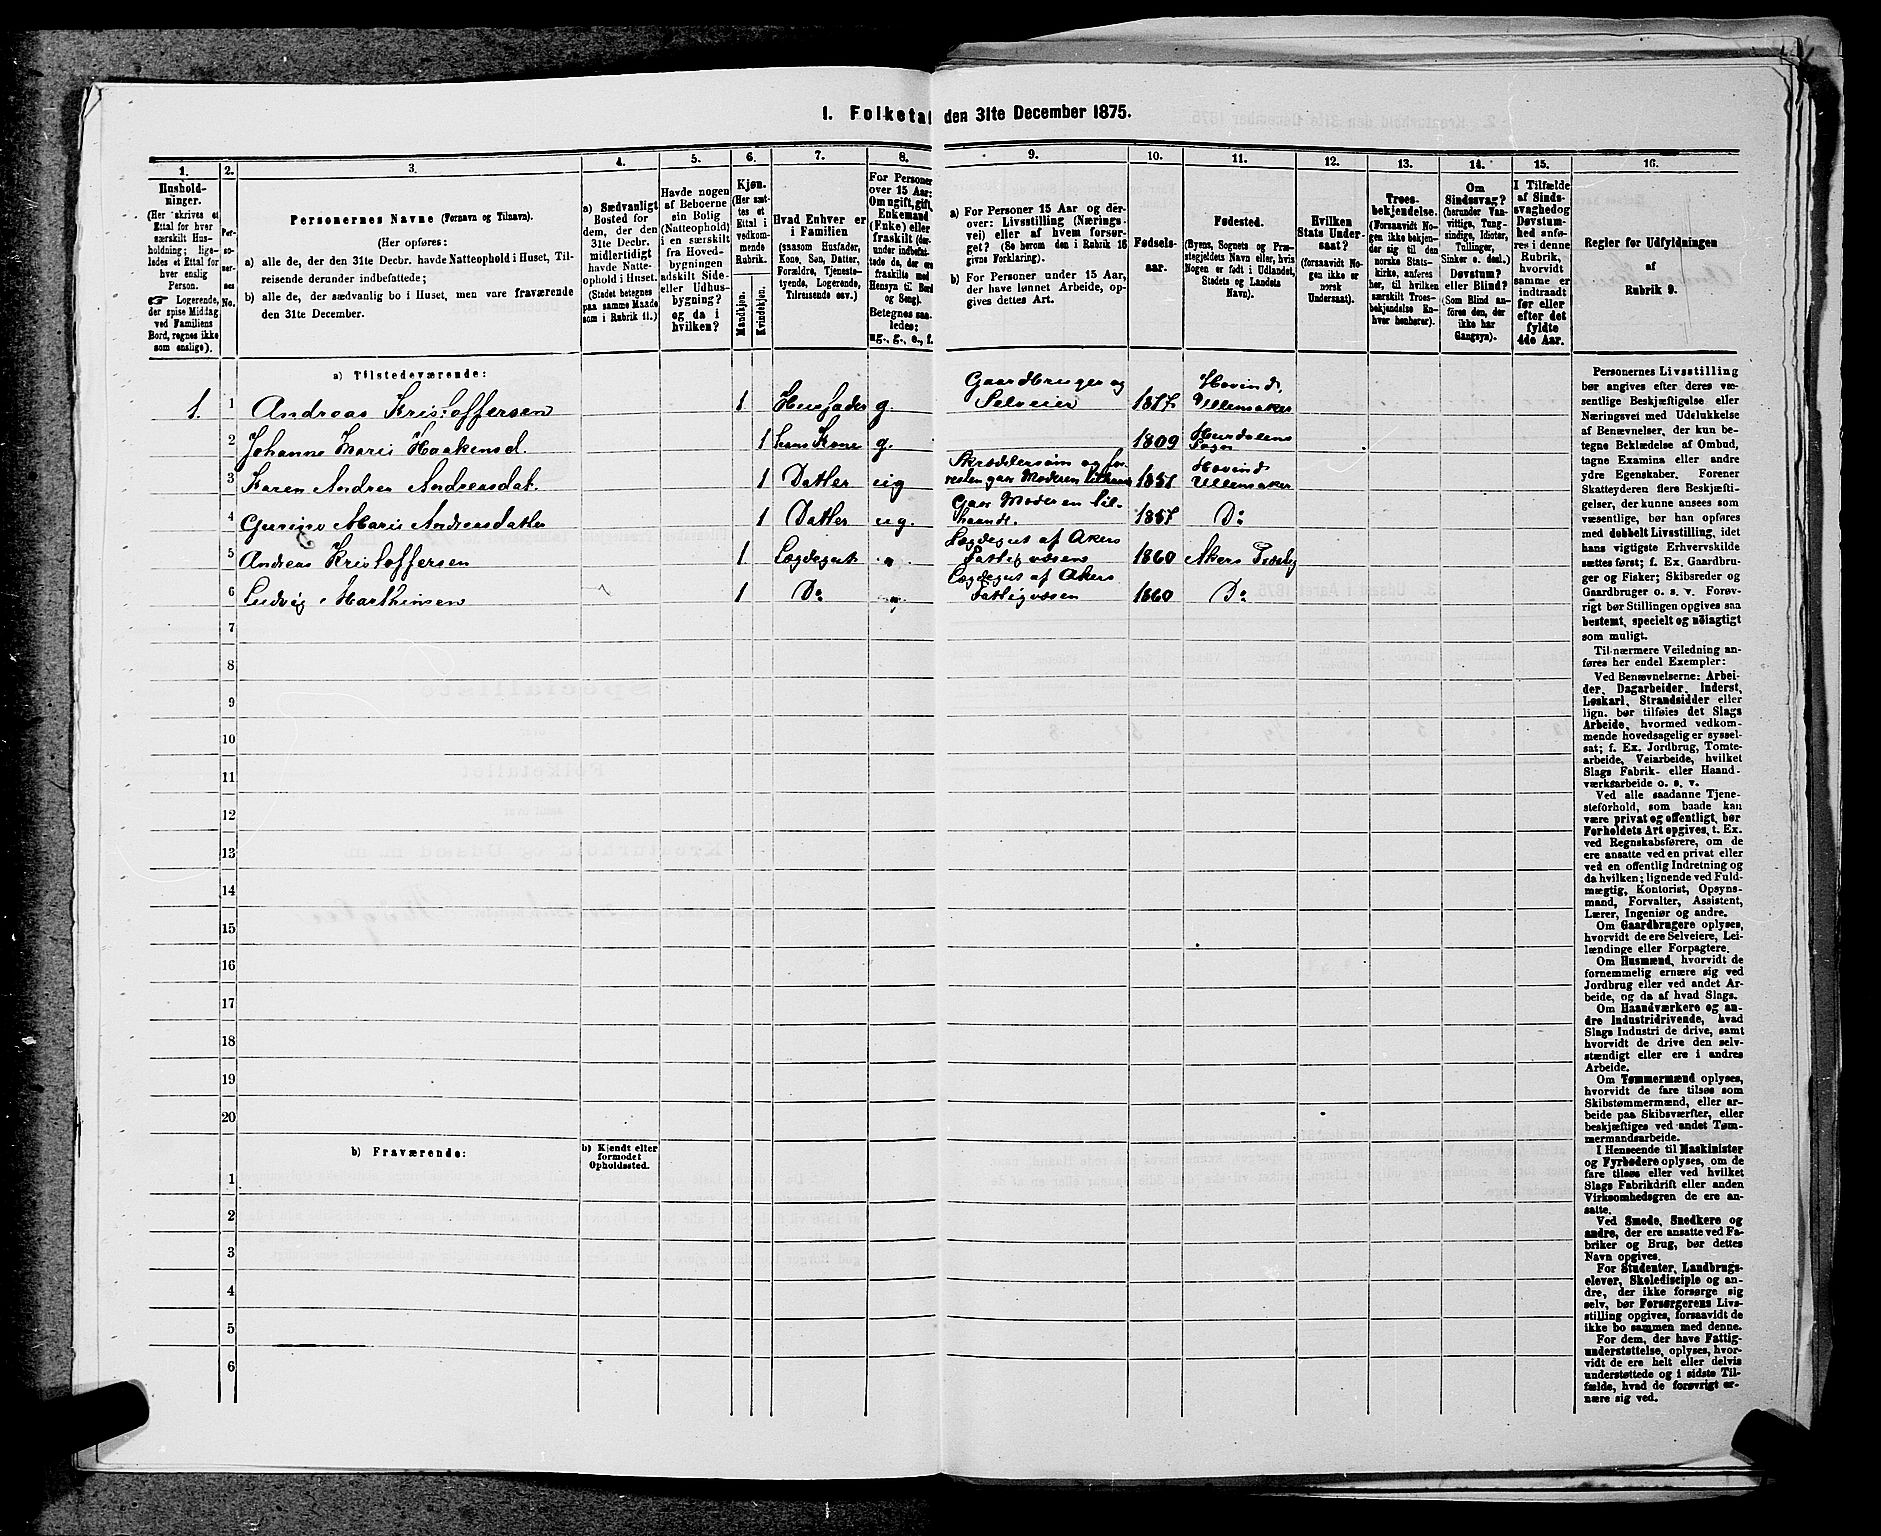 1. Folketal den 31te December 1875.
1.
Hushold-
ninger.
(Her skrives et
Ettal for hver
særskilt Hus-
holdning; lige-
ledes et Ettal for
hver enslig
Person.
☞ Logerende,
der spise Middag
ved Familiens
Bord, regnes ikke
som enslige).
2.
Per-
so-
ner-
nes
No.
3.
Personernes Navne (Fornavn og Tilnavn).
(Her opføres:
a) alle de, der den 31te Decbr. havde Natteophold i Huset, Til-
reisende derunder indbefattede;
b) alle de, der sædvanlig bo i Huset, men vare fraværende
den 31te December.
4.
a) Sædvanligt
Bosted for
dem, der den
31te Decbr.
midlertidigt
havde Natte-
ophold i Huset.
(Stedet betegnes
paa samme Maade
som i Rubrik 11.)
5.
Havde nogen
af Beboerne
sin Bolig
(Natteophold)
i en særskilt
fra Hoved-
bygningen
adskilt Side-
eller Udhus-
bygning?
og da i
hvilken?
6.
Kjøn.
(Her sæt-
tes et
Ettal i
vedkom-
mende
Rubrik.
Mandkjøn.
Kvindekjøn.
7.
Hvad Enhver er
i Familien
(saasom Husfader,
Kone, Søn, Datter,
Forældre, Tjeneste-
tyende, Logerende,
Tilreisende osv.)
8.
For Personer
over 15 Aar:
Om ugift, gift,
Enkemand
(Enke) eller
fraskilt (der-
under indbefat-
tede de, der ere
fraskilte med
Hensyn til Bord
og Seng).
Betegnes saa-
ledes:
ug., g., e., f.
9.
a) For Personer 15 Aar og der-
over: Livsstilling (Nærings-
vei) eller af hvem forsør-
get? (Se herom den i Rubrik 16
givne Forklaring).
b) For Personer under 15 Aar,
der have lønnet Arbeide, op-
gives dettes Art.
10.
Fødsels-
aar.
11.
Fødested.
(Byens, Sognets og Præ-
stegjeldets Navn eller, hvis
Nogen er født i Udlandet,
Stedets og Landets
Navn).
12.
Hvilken
Stats Under-
saat?
(forsaavidt No-
gen ikke er
norsk
Undersaat).
13.
Troes-
bekjendelse.
(Forsaavidt No-
gen ikke bekjen-
der sig til den
norske Stats-
kirke, anføres
her, til hvilken
særskilt Troes-
bekjendelse En-
hver henhører).
14.
Om
Sindssvag?
(herunder Van-
vittige, Tung-
sindige, Idioter,
Tullinger,
Sinker o. desl.)
Døvstum?
eller Blind?
(Som Blind an-
føres den, der
ikke har
Gangsyn).
15.
I Tilfælde
af Sinds-
svaghed og
Døvstum-
hed anfø-
res i denne
Rubrik,
hvorvidt
samme er
indtraadt
før eller
efter det
fyldte
4de Aar.
16.
Regler for Udfyldningen
af
Rubrik 9.
a) Tilstedeværende:
1. 1 Andreas Kristoffersen 1 Husfader g. Gaardbruger og Selveier 1817 Hovind, Ullensaker
2 Johanne Marie Haakensd. 1 hans Kone g. 1809 Hurdalens Sogn
3 Karen Andrea Andreasdat. 1 Datter ug Skræddersøm og for-resten gaar Moderen tilhaand 1851 Hovind Ullensaker
4 Gurine Marie Andreasdatter 1 Datter ug. Gaar Moderen til-haande. 1857 Do
5 Andreas Kristoffersen 1 Lægdegut „ Lægdegut af Akers Fattigvæsen 1860 Akers Præstg
6 Ludvig Marthinsen 1 Do „ Lægdegut af Akers Fattigvæsen 1860 Do
7
8
9
10
11
12
13
14
15
16
17
18
19
20
b) Fraværende:
b) Kjendt eller
formodet
Opholdssted.
1
2
3
4
5
6
Personernes Livsstilling
bør angives efter deres væ-
sentlige Beskjæftigelse eller
Næringsvei med Udelukkelse
af Benævnelser, der kun be-
tegne Beklædelse af Ombud,
tagne Examina eller andre
ydre Egenskaber. Forener
Skatteyderen flere Beskjæfti-
gelser, der kunne ansees som
væsentlige, bør han opføres
med dobbelt Livsstilling, idet
hans vigtigste Erhvervskilde
sættes først; f. Ex. Gaardbru-
ger og Fisker; Skibsreder og
Gaardbruger o. s. v. Forøv-
rigt bør Stillingen opgives saa
bestemt, specielt og nøiagtigt
som muligt.
Til nærmere Veiledning an-
føres her endel Exempler:
Ved Benævnelserne: Arbei-
der, Dagarbeider, Inderst,
Løskarl, Strandsidder eller
lign. bør tilføies det Slags
Arbeide, hvormed vedkom-
mende hovedsagelig er syssel-
sat; f. Ex. Jordbrug, Tomte-
arbeide, Veiarbeide, hvilket
Slags Fabrik- eller Haand-
værksarbeide o. s. v.
Ved alle saadanne Tjene-
steforhold, som baade kan
være privat og offentligt, bør
Forholdets Art opgives, t. Ex.
ved Regnskabsførere, om de
ere ansatte ved en privat eller
ved en offentlig Indretning og
da hvilken; lignende ved Fuld-
mægtig, Kontorist, Opsyns-
mand, Forvalter, Assistent,
Lærer, Ingeniør og andre.
Om Gaardbrugere oplyses,
hvorvidt de ere Selveiere, Lei-
lændinge eller Forpagtere.
Om Husmænd, hvorvidt de
fornemmelig ernære sig ved
Jordbrug eller ved andet Ar-
beide, og da af hvad Slags.
Om Haandværkere og an-
dre Industridrivende, hvad
Slags Industri de drive, samt
hvorvidt de drive den selv-
stændigt eller ere i andres
Arbeide.
Om Tømmermænd oplyses,
hvorvidt de fare tilsøs som
Skibstømmermænd, eller ar-
beide paa Skibsværfter, eller
beskjæftiges ved andet Tøm-
mermandsarbeide.
I Henseende til Maskinister
og Fyrbødere oplyses, om de
fare tilsøs eller ved hvilket
Slags Fabrikdrift eller anden
Virksomhedsgren de ere an-
satte.
Ved Smede, Snedkere og
andre, der ere ansatte ved Fa-
briker og Brug, bør dettes
Navn opgives.
For Studenter, Landbrugs-
elever, Skoledisciple og an-
dre, der ikke forsørge sig
selv, bør Forsørgerens Livs-
stilling opgives, forsaavidt de
ikke bo sammen med denne.
For dem, der have Fattig-
understøttelse, oplyses, hvor-
vidt de ere helt eller delvis
understøttede og i sidste Til-
fælde, hvad de forøvrigt er-
nære sig ved.